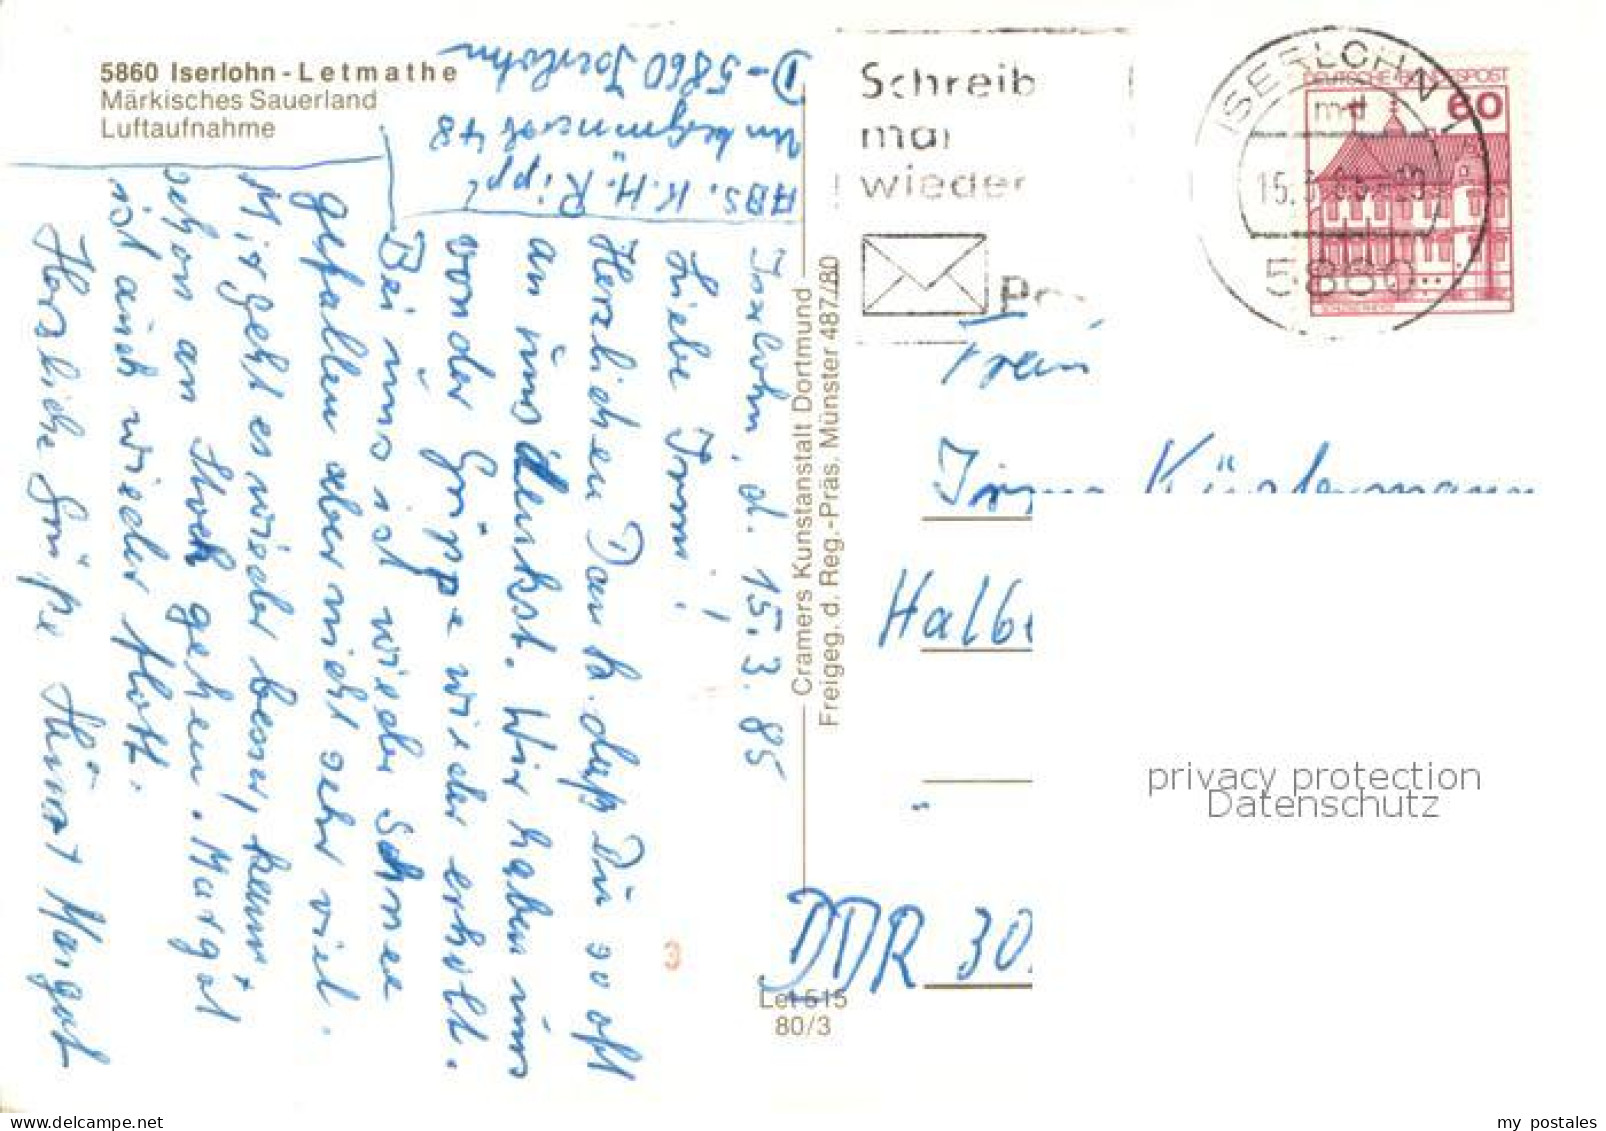 5860 Iserlohn-Letmathe
Märkisches Sauerland
Luftaufnahme
Abs. K.H. Rippl
48
D-5860 Iserlohn
Iserlohn, d. 15.3.85
Liebe Irma!
Herzlichen Dank, daß Du so oft
an uns denkst. Wir haben uns
von der Grippe wieder erholt.
Bei uns ist wieder Schnee
gefallen aber nicht sehr viel.
Mir geht es wieder besser, kann
schon am Stock gehen. Margot
ist auch wieder flott.
Herzliche Grüße Margot
Cramers Kunstanstalt Dortmund
Freigeg. d. Reg.-Präs. Münster 487/80
Let 515
80/3
3
Schreib
mal
wieder
Po
ISERLOHN 1
md
15.3.85
5860
DEUTSCHE BUNDESPOST
60
Frau
Irma Küstermann
Halbe
DDR 30
privacy protection
Datenschutz
my postales